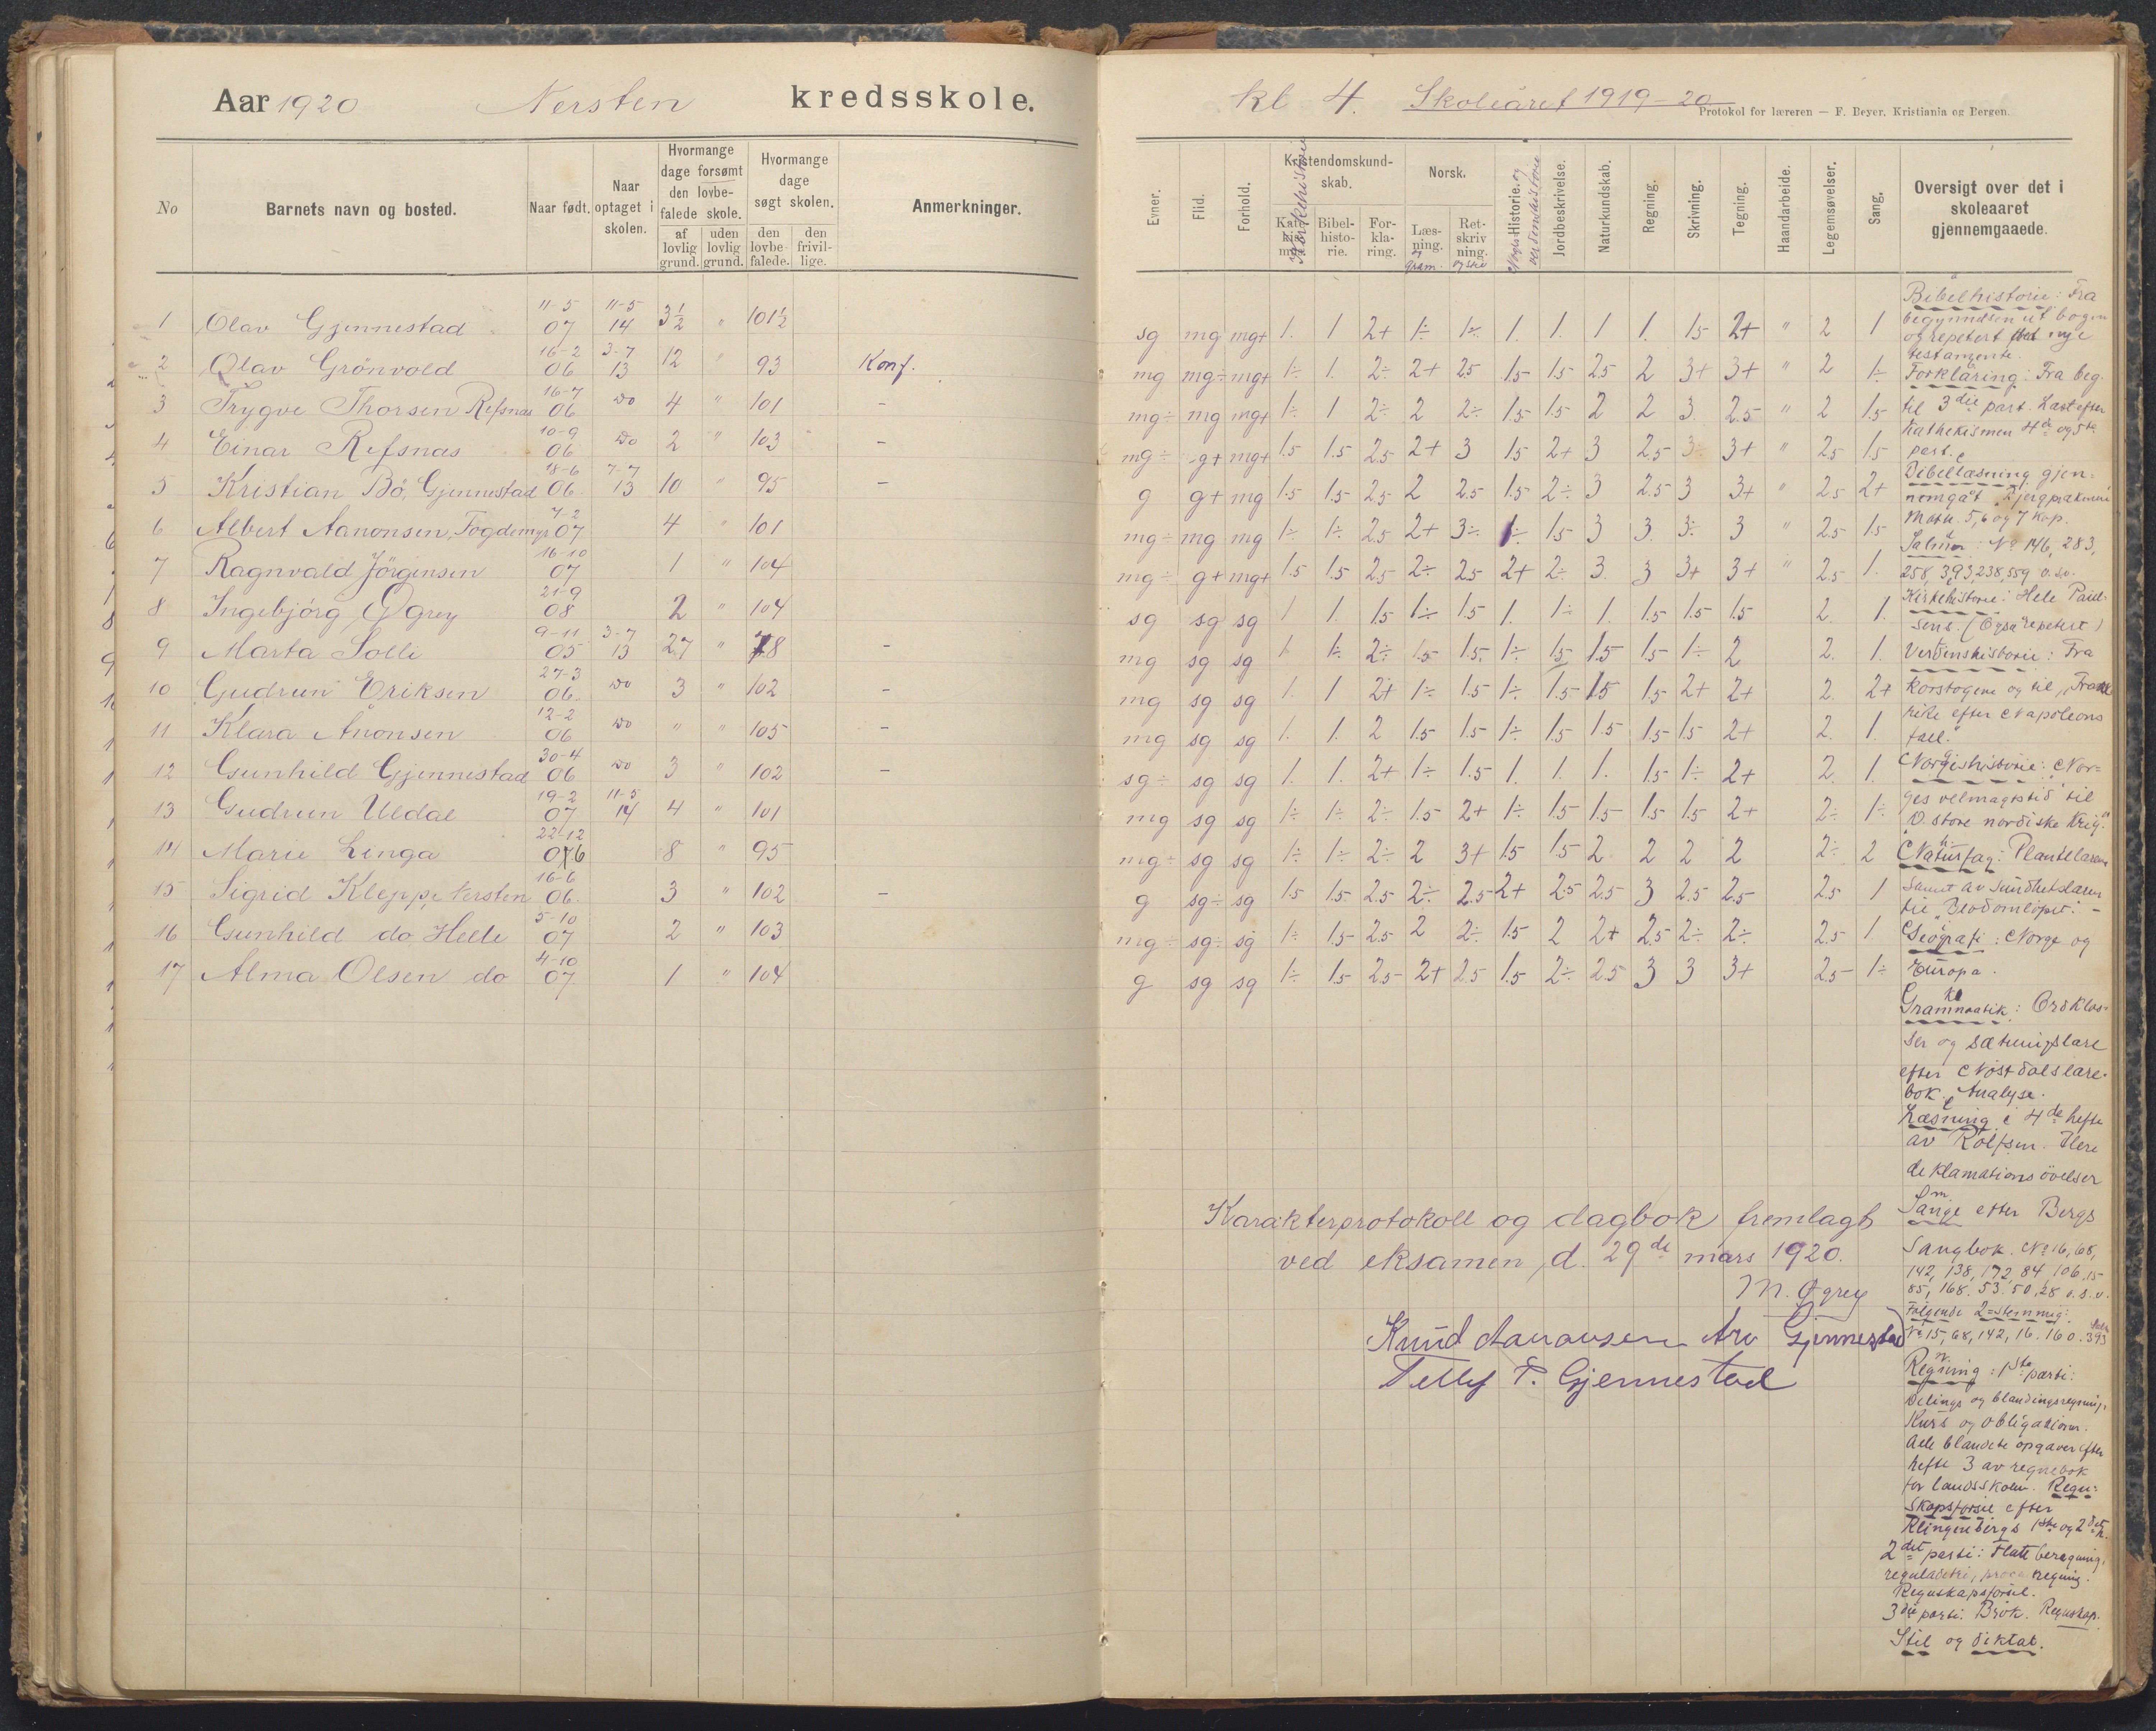 Aar 1920 Nersten kredsskole.
No
Barnets navn og bosted.
Naar født.
Naar optaget i skolen.
Hvormange dage forsømt den lovbefalede skole.
af lovlig grund.
uden lovlig grund.
Hvormange dage søgt skolen.
den lovbefalede.
den frivillige.
Anmerkninger.
1 Olav Gjennestad 11-5 07 11-5 14 3½ " 101½
2 Olav Grönvold 16-2 06 3-7 13 12 " 93 Konf.
3 Trygve Thorsen Refsnas 16-7 06 do 4 " 101 -
4 Einar Refsnas 10-9 06 do 2 " 103 -
5 Kristian Bö, Gjennestad 18-6 06 7-7 13 10 " 95 -
6 Albert Aanonsen, Fogdemyr 7-2 07 4 " 101
7 Ragnvald Jörgensen 16-10 07 1 " 104
8 Ingebjörg Øgrey 21-9 08 2 " 104
9 Marta Solli 9-11 05 3-7 13 27 " 78 -
10 Gudrun Eriksen 27-3 06 do 3 " 102 -
11 Klara Anonsen 12-2 06 do " " 105 -
12 Gunhild Gjennestad 30-4 06 do 3 " 102 -
13 Gudrun Uldal 19-2 07 11-5 14 4 " 101
14 Marie Linga 22-12 06 8 " 95
15 Sigrid Kleppe Nersten 16-6 06. 3 " 102 -
16 Gunhild do, Helle 5-10 07 2 " 103
17 Alma Olsen do 4-10 07. 1 " 104
kl 4. Skoleåret 1919-20
Protokol for læreren — F. Beyer, Kristiania og Bergen.
Evner.
Flid.
Forhold.
Kristendomskundskab.
Katekismus.
Kirkehistorie
Bibelhistorie.
Forklaring.
Norsk.
Læsning. og gram.
Retskrivning. og stil
Norges Historie. og verdenshistorie
Jordbeskrivelse.
Naturkundskab.
Regning.
Skrivning.
Tegning.
Haandarbeide.
Legemsøvelser.
Sang.
Oversigt over det i skoleaaret gjennemgaaede.
sg mg mg+ 1. 1 2+ 1÷ 1÷ 1. 1. 1 1. 1.5 2+ " 2 1
mg mg÷ mg+ 1÷ 1. 2÷ 2+ 2.5 1.5 1.5 2.5 2 3+ 3+ " 2 1÷
mg÷ mg mg+ 1÷ 1 2÷ 2 2÷ 1.5 1.5 2 2 3. 2.5 " 2 1.5
mg÷ g+ mg+ 1.5 1.5 2.5 2+ 3 1.5 2+ 3 2.5 3÷ 3+ " 2.5 1.5
g g+ mg 1.5 1.5 2.5 2 2.5 1.5 2÷ 3 2.5 3 3+ " 2.5 2+
mg÷ mg mg 1÷ 1÷ 2.5 2+ 3÷ 1÷ 1.5 3 3. 3÷ 3 " 2.5 1.5
mg÷ g+ mg+ 1.5 1.5 2.5 2÷ 2.5 2+ 2÷ 3. 3 3+ 3+ " 2.5 1.
sg sg sg 1 1. 1.5 1÷ 1.5 1. 1÷ 1. 1.5 1.5 1.5 2. 1.
mg sg sg 1 1÷ 2÷ 1.5 1.5. 1÷ 1.5 1.5 1.5 1÷ 2 2. 1.
mg sg sg 1. 1 2+ 1÷ 1.5 1÷ 1.5 1.5 1.5 2+ 2+ 2. 2+
mg sg sg 1. 1. 2 1.5 1.5 1÷ 1.5 1.5 1.5 1.5 2+ 2. 1.
sg÷ sg sg 1. 1. 2+ 1÷ 1.5 1. 1. 1. 1.5 1÷ 2+ 2. 1.
mg sg sg 1÷ 1÷ 2÷ 1.5 2+ 1÷ 1.5 1.5 1.5 1.5 2+ 2÷ 1÷
mg÷ sg sg 1÷ 1÷ 2÷ 2 3+ 1.5 1.5 2. 2 2 2 2÷ 2
g sg÷ sg 1.5 1.5 2.5 2÷ 2.5 2+ 2.5 2.5 3 2.5 2.5 2.5 1
mg÷ sg÷ sg 1÷ 1.5 2.5 2 2÷ 1.5 2 2+ 2.5 2÷ 2÷ 2.5 1
g sg sg 1÷ 1.5 2.5 2+ 2.5 1.5 2÷ 2.5 3 3 3+ 2.5 1÷
Bibelhistorie: Fra
begynndsen ut bogen
og repetert det nye
testamente.
Forklaring: Fra beg.
til 3die part. Læst efter
Kathekismen 4de og 5te
part.
Bibellæsning gjen-
nemgåt Bjergprækenen
Math. 5, 6 og 7 kap.
Salmer: No 146, 283,
258, 393, 238, 559 o.sv.
Kirkehistorie: Hele Paul-
sens. (Også repetert)
Verdenshistorie: Fra
Korstogene og til "Frank
rike efter Napoleons
fall."
Norgeshistorie: "Nor-
ges velmagtstid" til
"D. store nordiske krig."
Naturfag: Plantelæren
samt av sundhetslæren
til "Blodomlöpet." -
Geografi: Norge og
Europa.
Grammatik: Ordklas-
ser og sætningslære
efter Nöstdals lære-
bok. Analyse.
Læsning i 4de hefte
av Rolfsen. Flere
deklamationsövelser
Sange efter Bergs
Sangbok. No 16, 68,
142, 138, 172, 84, 106, 15
85, 168. 53. 50, 28 o.s.v.
Følgende 2-stemmig:
No 15, 68, 142, 16. 160. 393
Regning: 1ste parti:
Delings og blandingsregning,
Kurs og obligationer.
Alle blandete opgaver efter
hefte 3 av regnebok
for landsskolen. Regn-
skapsførsel efter
Klingenbergs 1ste og 2det h.
2det parti: Flateberegning,
reguladetri, procentregning.
Regnskapsførsel.
3die parti: Brök. Regnskap.
Stil og diktat.
Karakterprotokoll og dagbok fremlagt
ved eksamen, d. 29de mars 1920.
M. Øgrey
Knud Aanonsen Arv Gjennestad
Tellef T. Gjennestad